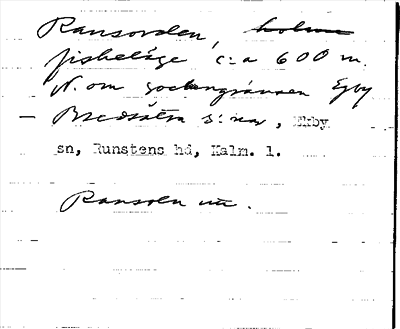 Ransorden, holme
fiskeläge, c:a 600 m.
N. om sockengränsen Egby
– Bredsätra s:nar, Ekby
sn, Runstens hd, Kalm. l.
Ransoln